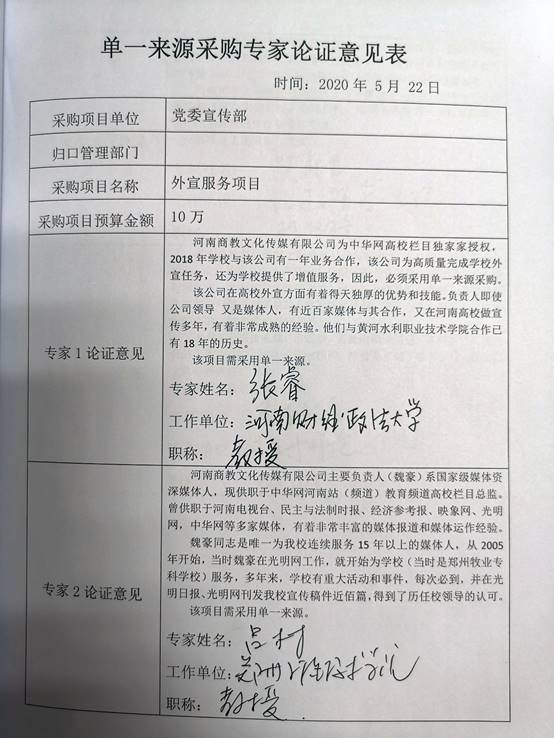 单一来源采购专家论证意见表
时间：2020 年 5 月 22 日
采购项目单位 党委宣传部
归口管理部门
采购项目名称 外宣服务项目
采购项目预算金额 10 万
专家 1 论证意见
河南商教文化传媒有限公司为中华网高校栏目独家家授权，
2018 年学校与该公司有一年业务合作，该公司为高质量完成学校外
宣任务，还为学校提供了增值服务，因此，必须采用单一来源采购。
该公司在高校外宣方面有着得天独厚的优势和技能。负责人即使
公司领导 又是媒体人，有近百家媒体与其合作，又在河南高校做宣
传多年，有着非常成熟的经验。他们与黄河水利职业技术学院合作已
有 18 年的历史。
该项目需采用单一来源。
专家姓名：张睿
工作单位：河南财经政法大学
职称：教授
专家 2 论证意见
河南商教文化传媒有限公司主要负责人（魏豪）系国家级媒体资
深媒体人，现供职于中华网河南站（频道）教育频道高校栏目总监。
曾供职于河南电视台、民主与法制时报、经济参考报、映象网、光明
网，中华网等多家媒体，有着非常丰富的媒体报道和媒体运作经验。
魏豪同志是唯一为我校连续服务 15 年以上的媒体人，从 2005
年开始，当时魏豪在光明网工作，就开始为学校（当时是郑州牧业专
科学校）服务，多年来，学校有重大活动和事件，每次必到，并在光
明日报、光明网刊发我校宣传稿件近佰篇，得到了历任校领导的认可。
该项目需采用单一来源。
专家姓名：吕村
工作单位：郑州
职称：教授